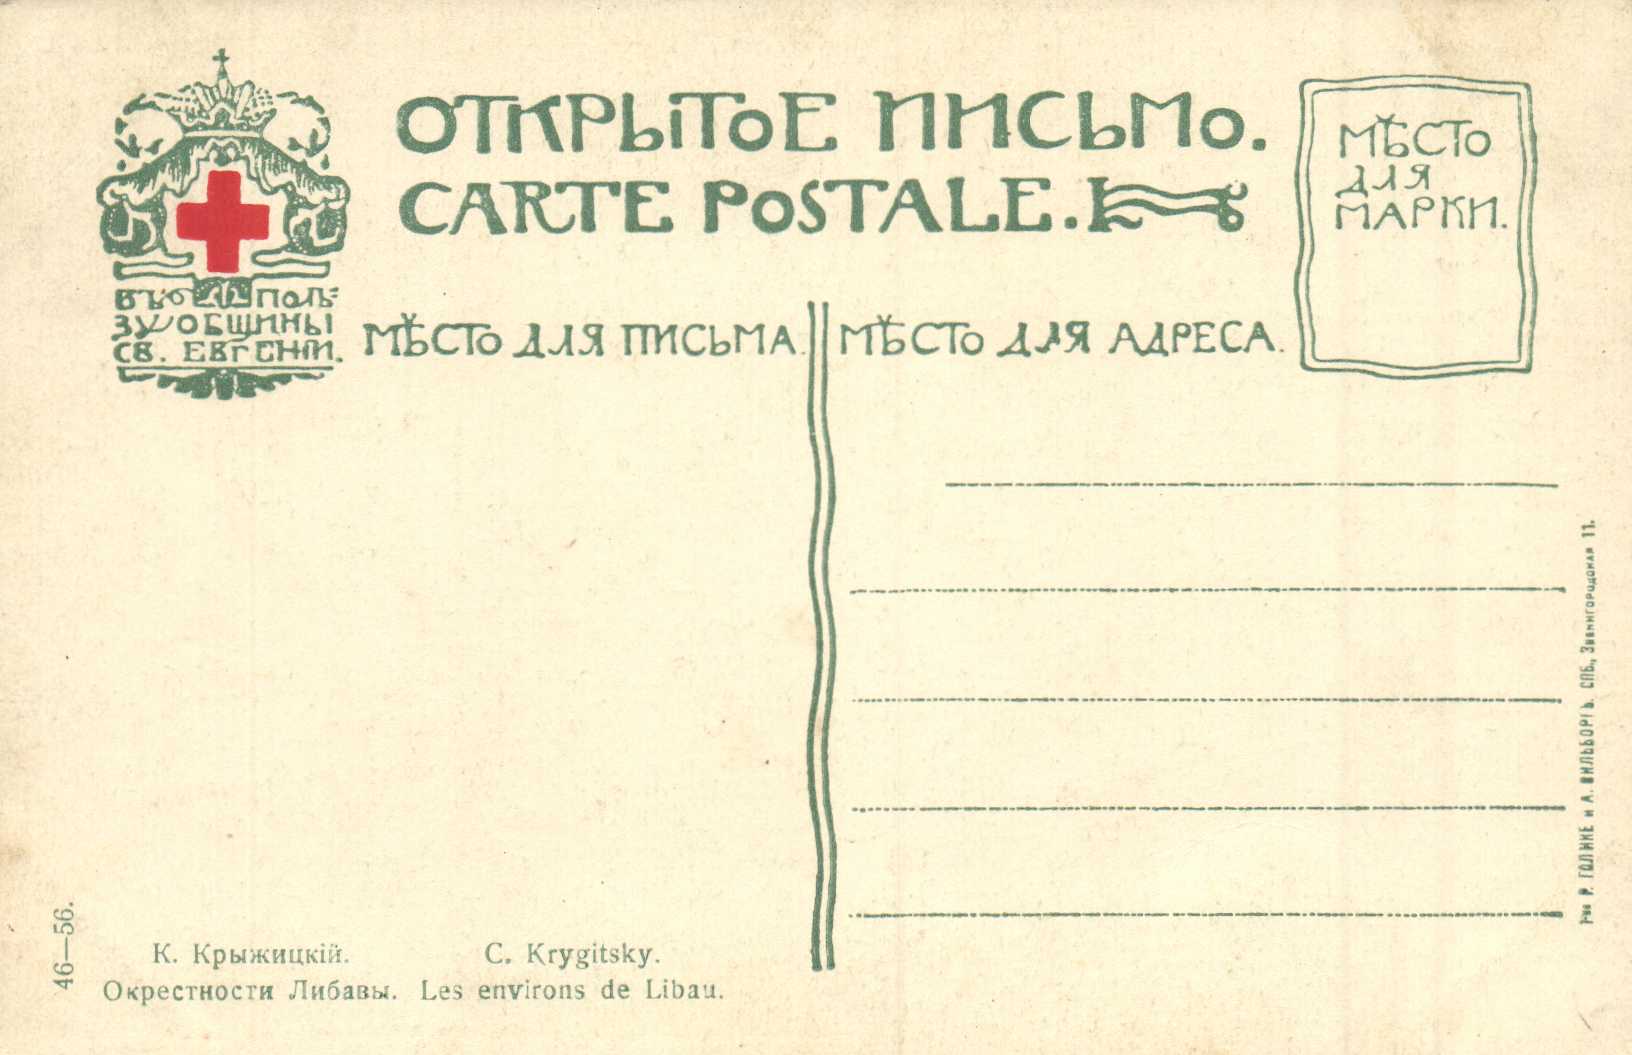 ОТКРЫТОЕ ПИСЬМО.
CARTE POSTALE.
МѢСТО
ДЛЯ
МАРКИ.
ВЪ ПОЛЬ=
ЗУ ОБЩИНЫ
СВ. ЕВГЕНІИ.
МѢСТО ДЛЯ ПИСЬМА.
МѢСТО ДЛЯ АДРЕСА.
46—56.
К. Крыжицкій. C. Krygitsky.
Окрестности Либавы. Les environs de Libau.
Т-во Р. ГОЛИКЕ и А. ВИЛЬБОРГЪ. СПБ., Звенигородская 11.